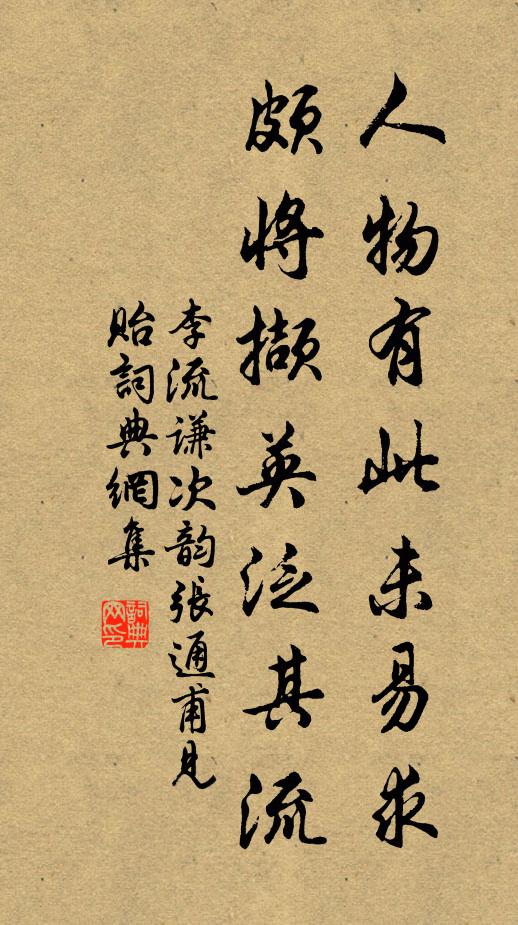 人物有此未易求
頗將擷英泛其流
李流謙次韵張通甫見
貽詞典網集
詞典
网印